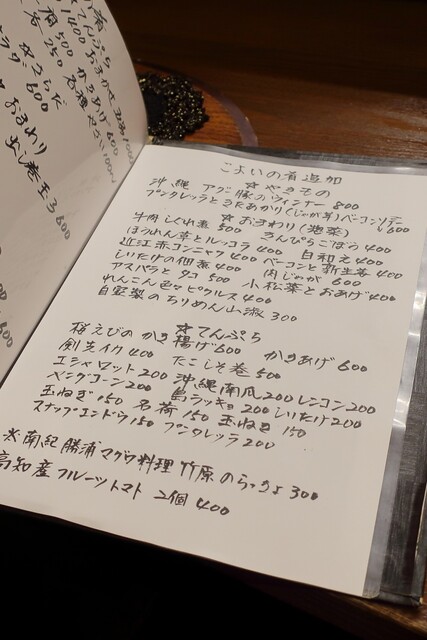 こよいの有追加
☆やきもの
沖縄 アグー豚のウィンナー 800
プンタレッラときたあかり(じゃが芋)ベーコンソテー 600
☆おまわり(惣菜)
牛肉しぐれ煮 500 きんぴらごぼう 400
ほうれん草とルッコラ 400 白和え 400
近江赤コンニャク 400 ベーコンと新生姜 400
しいたけの佃煮 400 肉じゃが 600
アスパラとタコ 500 小松菜とおあげ 400
れんこん色々ピクルス 400
自家製のちりめん山椒 300
☆てんぷら
桜えびのかき揚げ 600 かきあげ 600
剣先イカ 400 たこしそ巻 500
エシャロット 200 沖縄南瓜 200 レンコン 200
ベビーコーン 200 島ラッキョ 200 しいたけ 200
玉ねぎ 150 茗荷 150 玉ねぎ 150
スナップエンドウ 150 プンタレッラ 200
※南紀勝浦マグロ料理竹原のらっきょ 300
高知産フルーツトマト 2個 400